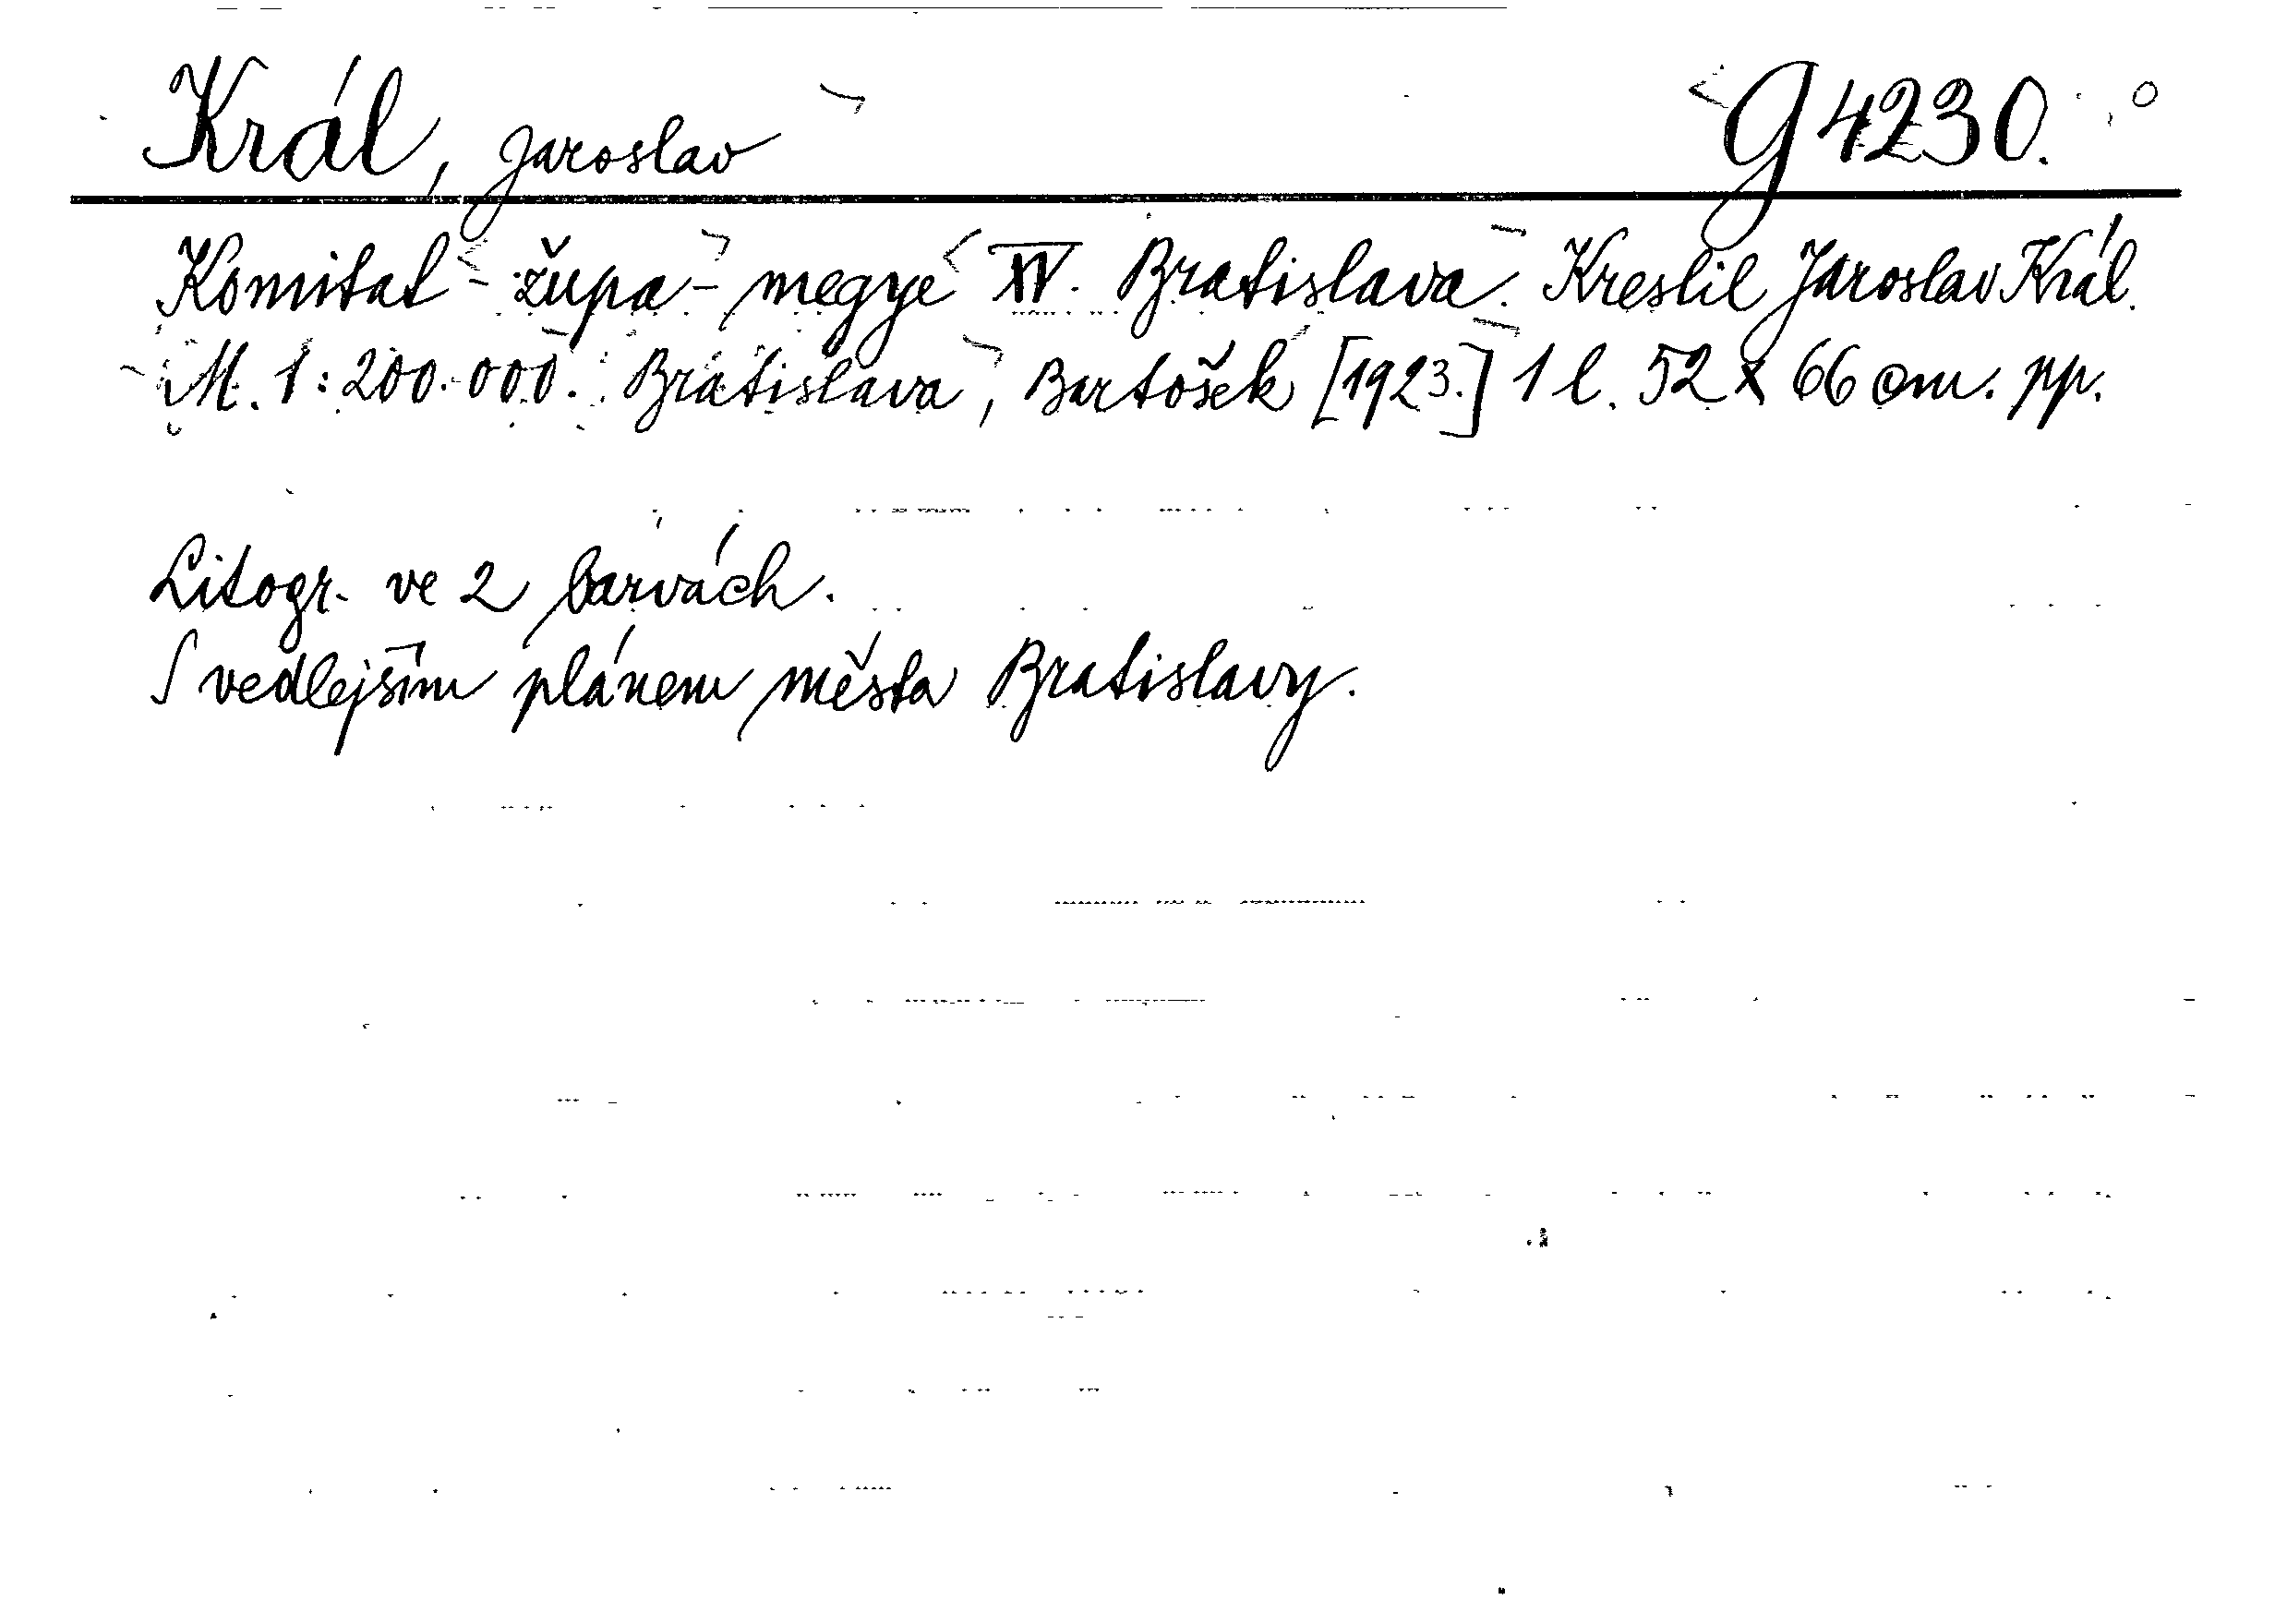 Král, Jaroslav G 4230.
Komitat - župa - megye XV. Bratislava. Kreslil Jaroslav Král.
M. 1:200.000. Bratislava, Bartošek [1923.] 1 l. 52 x 66 cm. pp.
Litogr. ve 2 barvách.
S vedlejším plánem města Bratislavy.